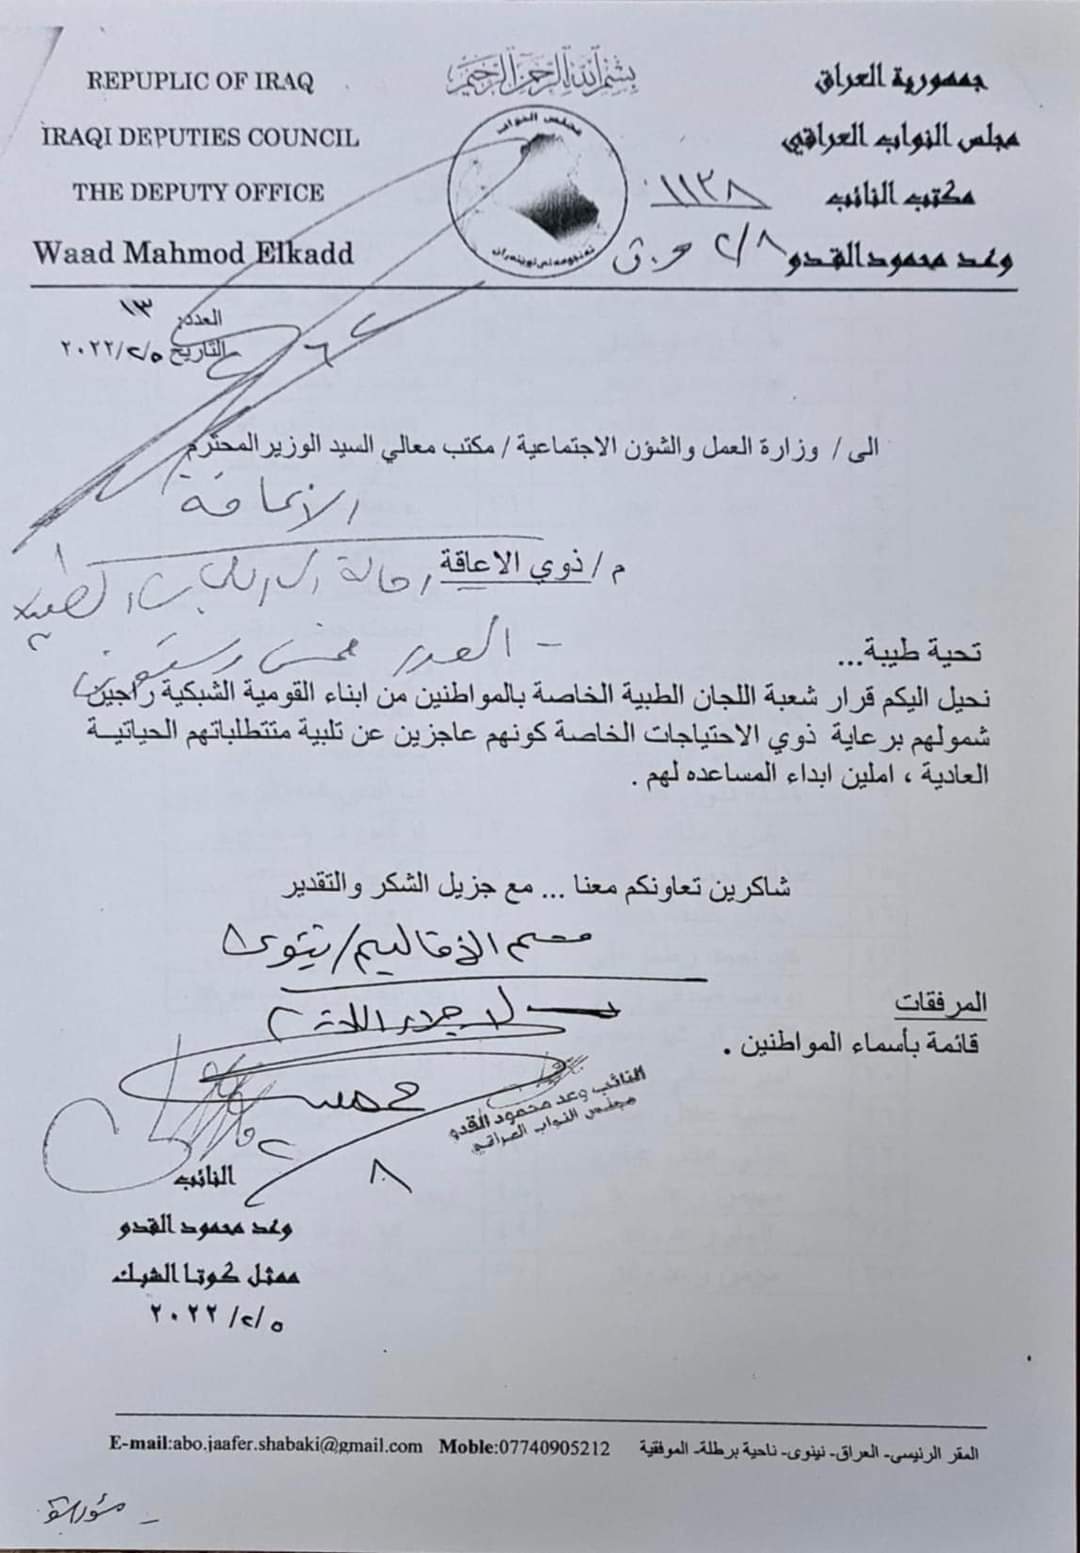 بسم الله الرحمن الرحيم
جمهورية العراق
مجلس النواب العراقي
مكتب النائب
وعد محمود القدو
REPUPLIC OF IRAQ
IRAQI DEPUTIES COUNCIL
THE DEPUTY OFFICE
Waad Mahmod Elkadd
مجلس النواب
١١٣٨
٢/٨
العدد: ١٣
التاريخ ٢٠٢٢/٢/٥
الى / وزارة العمل والشؤن الاجتماعية / مكتب معالي السيد الوزير المحترم
م / ذوي الاعاقة
تحية طيبة...
نحيل اليكم قرار شعبة اللجان الطبية الخاصة بالمواطنين من ابناء القومية الشبكية راجين
شمولهم برعاية ذوي الاحتياجات الخاصة كونهم عاجزين عن تلبية متتطلباتهم الحياتيـة
العادية ، املين ابداء المساعده لهم .
شاكرين تعاونكم معنا ... مع جزيل الشكر والتقدير
قسم الأقاليم/نينوى
المرفقات
قائمة بأسماء المواطنين .
النائب وعد محمود القدو
مجلس النواب العراقي
٢/٨
النائب
وعد محمود القدو
ممثل كوتا الشبك
٢٠٢٢/٢/٥
المقر الرئيسي- العراق- نينوى- ناحية برطلة- الموفقية
E-mail:abo.jaafer.shabaki@gmail.com Moble:07740905212